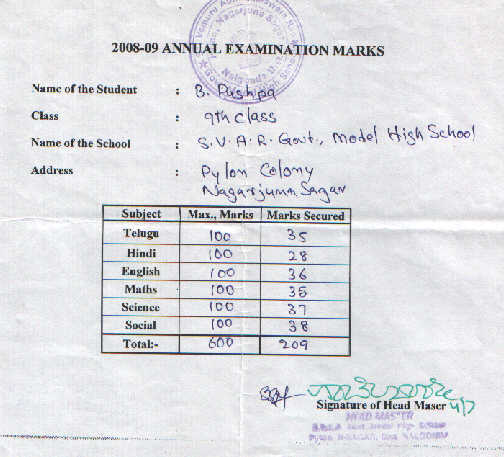 2008-09 ANNUAL EXAMINATION MARKS
Name of the Student : B. Pushpa
Class : 9th class
Name of the School : S.V.A.R. Govt., Model High School
Address : Pylon Colony
Nagarjuna Sagar
Subject Max., Marks Marks Secured
Telugu 100 35
Hindi 100 28
English 100 36
Maths 100 35
Science 100 37
Social 100 38
Total:- 600 209
Signature of Head Maser 4/7
HEAD MASTER